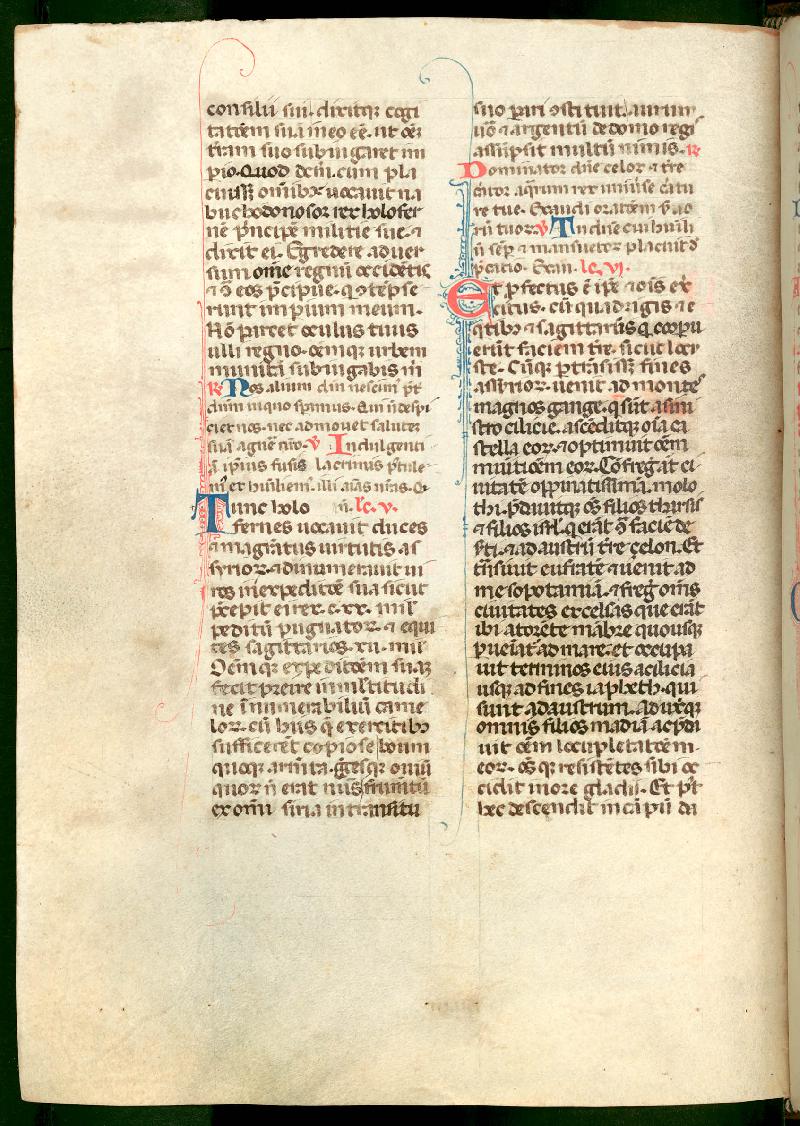 consilii sui. dixitqz cogi
tatōem suā in eo eē. ut oēꝫ
tr̄am suo subiugaret im
pio. Quod dc̄m. cum pla
cuiss; om̄ibꝫ uocauit na
buchodonosor rex holofer
nē p̄ncipē militie sue. ⁊
dixit ei. Egredere aduer
sum om̄e regnū occidētis
⁊ ꝯ̄ eos p̄cipue. q̇ ꝯtēpse
runt impium meum.
Nō parcet oculus tuus
ulli regno. oēmqꝫ urbem
munitā subiugabis m̄
R Nos alium dm̄ nescim' pt̄
dūm in quo sp̄mus. Qui n̄ despi
ciet nos. nec admouet salutē
suā a gnē nr̄o. V Indulgenti
ā ip̄ius fusis lacrimis pstule
m' et humiliem' illi aīas nr̄as. Q
Tunc holo m̄. lc. v.
fernes uocauit duces
⁊ magr̄atus uirtutis as
syrioꝝ. ⁊ dinumerauit ui
ros in expeditōē sicut
p̄cepit ei rex. c. xx. mil'
peditū pugnatoꝝ. ⁊ equi
tes sagittarios. xii. mil'
Oēmqꝫ expeditōem suaꝫ
fecit preire i multitudi
ne īnumerabiliū came
loꝝ. cū hiis q̄ exercitibꝫ
sufficerēt copiose boum
quoqꝫ arm̄ta. gregesqꝫ ouiū
quoꝝ n̄ erat nūs frumētū
ex om̄i siria in transitu
suo parari ꝯstituit. aurum
uō ⁊ argentū de domo regis
assūpsit multū nimis. R
Dominator dn̄e celoꝝ ⁊ t̄re
c̄ator aq̄rum rex uniūse c̄atu
re tue. Exaudi oratōem ẜuo
rū tuoꝝ V Tu dn̄e cui humili
ū sēp ⁊ mansuetoꝝ placuit d̄
p̄catio. Exau. lc. vi.
Et ꝓfectus ē ip̄e ⁊ oīs ex
ercitus. cū quadrigis ⁊ e
q̄tibꝫ ⁊ sagittariis q̇ coopu
erūt faciem t̄re. sicut locu
ste. Cūqꝫ ꝑtrāsiss; fines
assyrioꝝ. uenit ad montes
magnos gange. q̇ sūt a sini
stro cilicie. ascēditqꝫ oīa ca
stella eoꝝ. ⁊ optinuit oēm
munitōem eoꝝ. Cōfregit at ci
uitatē oppinatissimā. melo
thi. p̄dauitqꝫ oēs filios tharsis
⁊ filios isr̄l. q̇ erāt ꝯ̄ faciē de
s̄ti. ⁊ ad austrū t̄re celon. Et
trāsiuit eufratē ⁊ uenit ad
mesopotamiā. ⁊ fregit om̄s
ciuitates excelsas que erāt
ibi a torēte mābre quousqꝫ
ꝑueniat ad mare. et occupa
uit terminos eius a cilicia
usqꝫ ad fines iapheth. qui
sunt ad austrum. Aduxitqꝫ
omnis filios madiā ⁊ p̄da
uit oēm locupletatōem
eoꝝ. oēs qꝫ resistētes sibi oc
cidit i ore gladii. Et post
hec descendit in cāpū da